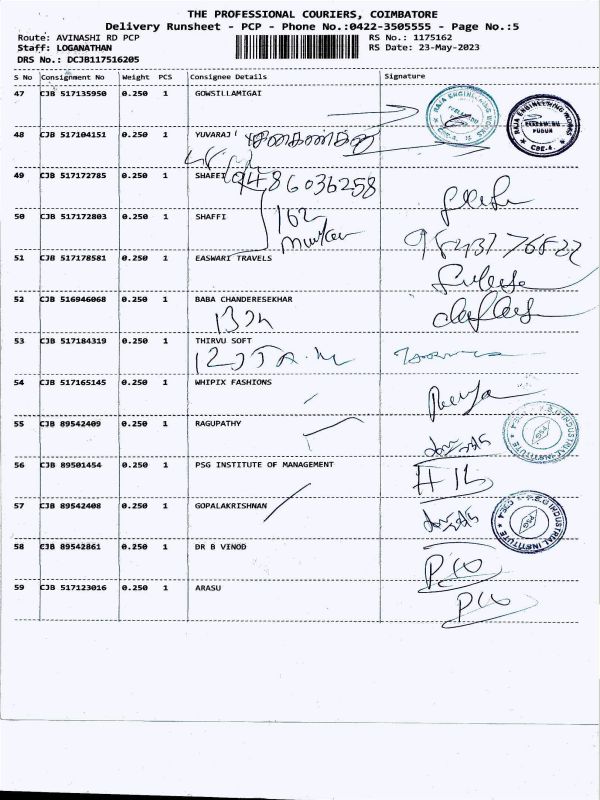 THE PROFESSIONAL COURIERS, COIMBATORE
Delivery Runsheet - PCP - Phone No.:0422-3505555 - Page No.:5
Route: AVINASHI RD PCP RS No.: 1175162
Staff: LOGANATHAN RS Date: 23-May-2023
DRS No.: DCJB117516205
S No Consignment No Weight PCS Consignee Details Signature
47 CJB 517135950 0.250 1 GOWSILLAMIGAI
RAJA ENGINEERING WORKS
RAJA ENGINEERING WORKS PUDUR CBE-4.
48 CJB 517104151 0.250 1 YUVARAJ
49 CJB 517172785 0.250 1 SHAFFI 9486036258
50 CJB 517172803 0.250 1 SHAFFI 162
98437 76822
51 CJB 517178581 0.250 1 EASWARI TRAVELS
52 CJB 516946068 0.250 1 BABA CHANDERESEKHAR
53 CJB 517184319 0.250 1 THIRVU SOFT
54 CJB 517165145 0.250 1 WHIPIX FASHIONS
55 CJB 89542409 0.250 1 RAGUPATHY
P.S.G INDUSTRIAL INSTITUTE PSG
56 CJB 89501454 0.250 1 PSG INSTITUTE OF MANAGEMENT
57 CJB 89542408 0.250 1 GOPALAKRISHNAN
P.S.G INDUSTRIAL INSTITUTE PSG
58 CJB 89542861 0.250 1 DR B VINOD
59 CJB 517123016 0.250 1 ARASU